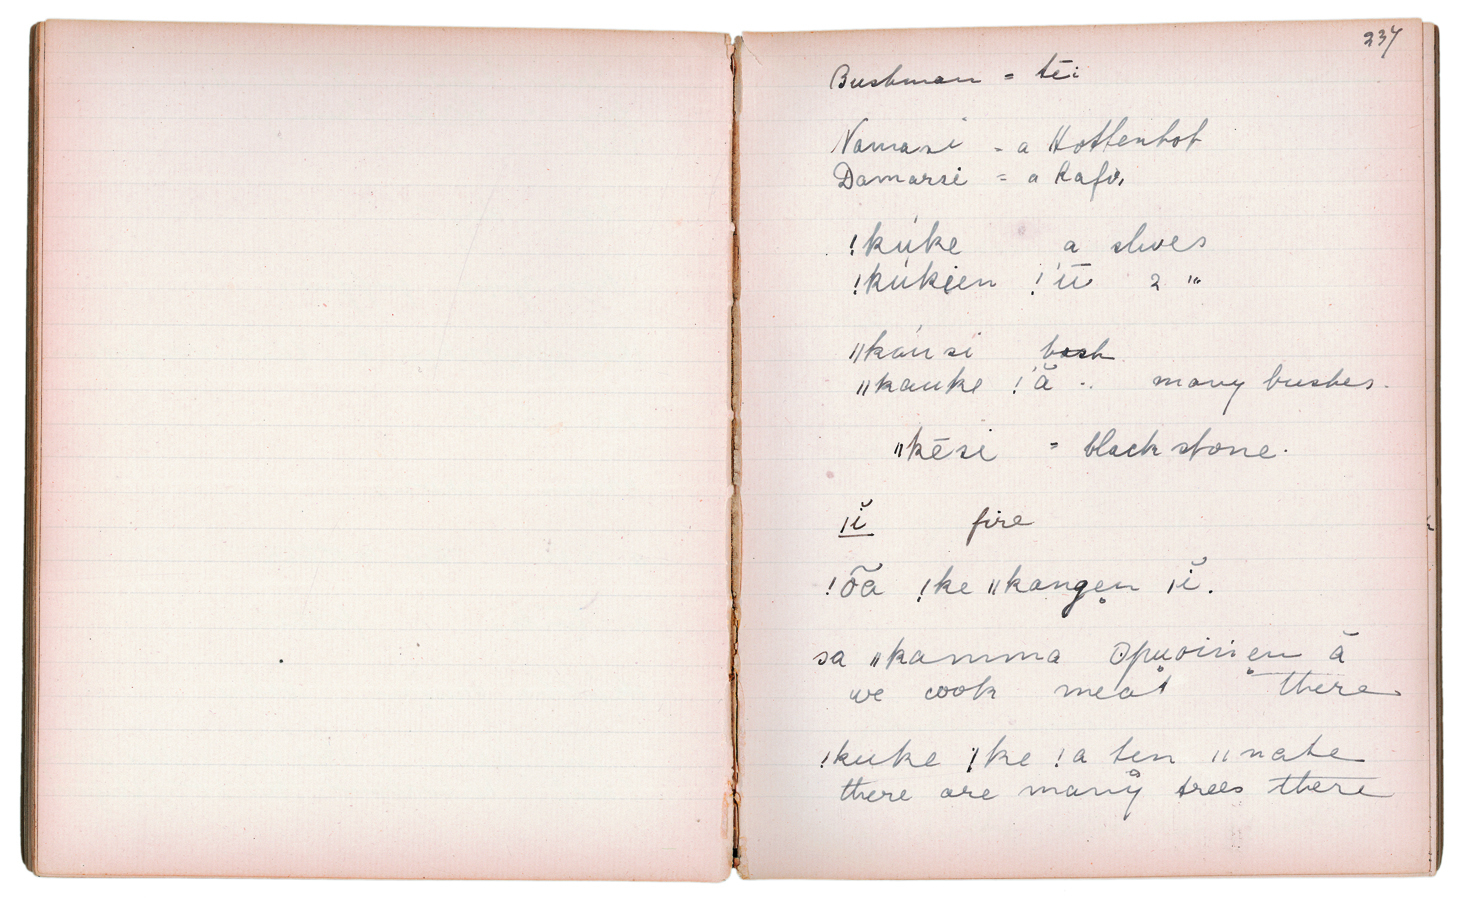 237
Bushman = tēi
Namasi = a Hottentot
Damarsi = a Kafir
!kúke a
!kúkjen !'ū 2 "
ǁkáusi bush
ǁkauke !'ă .. many bushes.
ǁkēsi = black stone.
ǀĭ fire
!õa !ke ǁkangen ǀĭ.
sa ǁkamma ă
we cook meat there
!kuke !ke !a ten ǁnate
there are many trees there